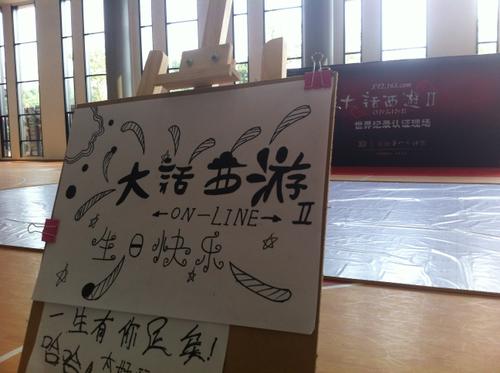 大话西游
←ON-LINE→ II
生日快乐
一生有你足矣!
哈哈
XY2.163.com
大话西游II
ONLINE
世界纪录认证现场